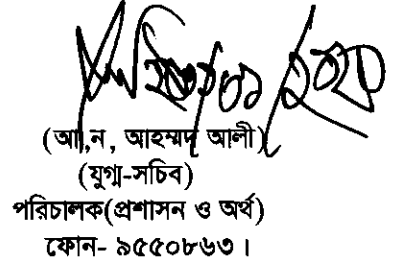 (আ,ন, আহম্মদ আলী)
(যুগ্ম-সচিব)
পরিচালক(প্রশাসন ও অর্থ)
ফোন- ৯৫৫০৮৬৩।